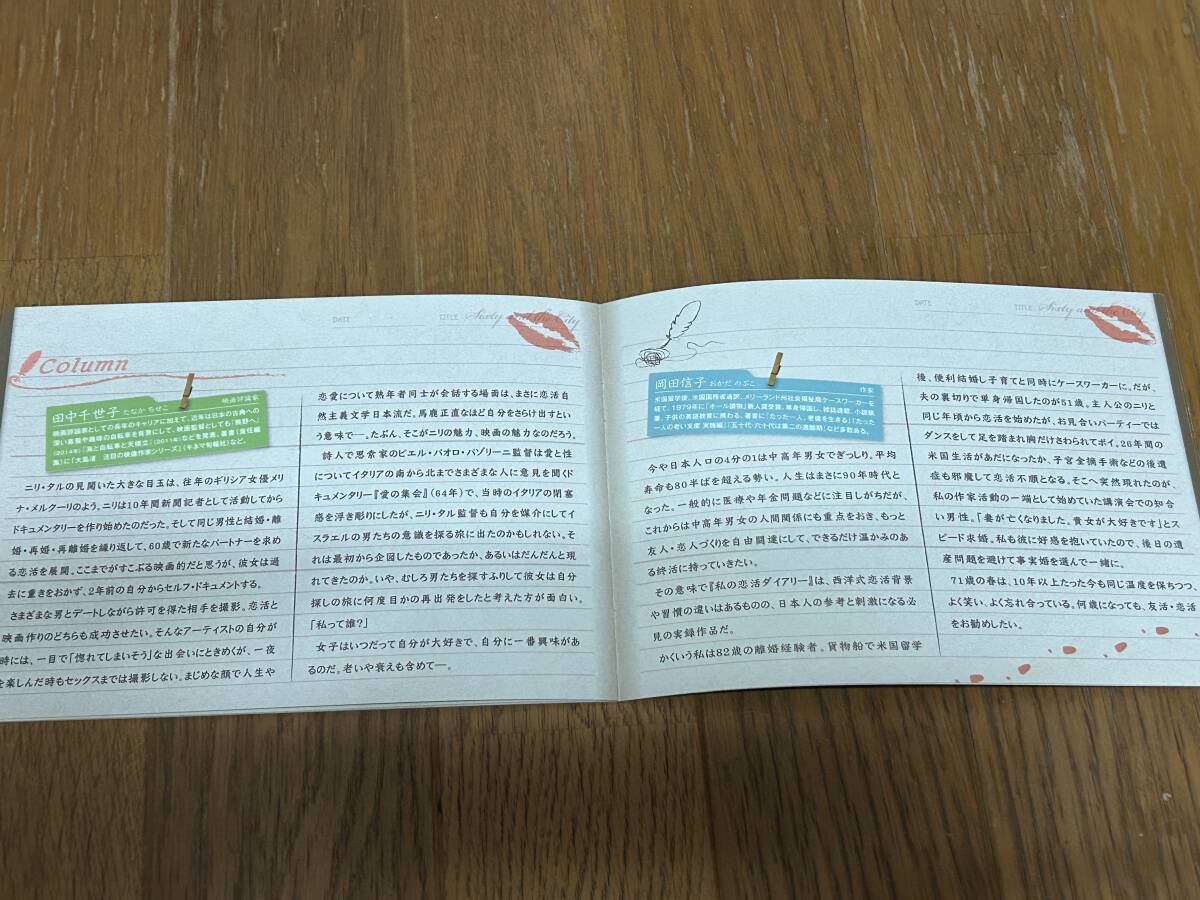 DATE
TITLE Sixty and the City
Column
田中千世子 たなか ちせこ
映画評論家
映画評論家としての長年のキャリアに加えて、近年は日本の古典への
深い素養や趣味の自転車を背景にして、映画監督としても「熊野へ」
(2014年)「海と自転車と天橋立」(2011年)などを発表。著書(責任編
集)に「大島渚 注目の映像作家シリーズ」(キネマ旬報社)など。
ニリ・タルの見開いた大きな目玉は、往年のギリシア女優メリ
ナ・メルクーリのよう。ニリは10年間新聞記者として活動してから
ドキュメンタリーを作り始めたのだった。そして同じ男性と結婚・離
婚・再婚・再離婚を繰り返して、60歳で新たなパートナーを求め
る恋活を展開。ここまでがすこぶる映画的だと思うが、彼女は過
去に重きをおかず、2年前の自分からセルフ・ドキュメントする。
さまざまな男とデートしながら許可を得た相手を撮影。恋活と
映画作りのどちらも成功させたい。そんなアーティストの自分が
時には、一目で「惚れてしまいそう」な出会いにときめくが、一夜
を楽しんだ時もセックスまでは撮影しない。まじめな顔で人生や
恋愛について熟年者同士が会話する場面は、まさに恋活自
然主義文学日本流だ。馬鹿正直なほど自分をさらけ出すとい
う意味で―。たぶん、そこがニリの魅力、映画の魅力なのだろう。
詩人で思索家のピエル・パオロ・パゾリーニ監督は愛と性
についてイタリアの南から北までさまざまな人に意見を聞くド
キュメンタリー『愛の集会』(64年)で、当時のイタリアの閉塞
感を浮き彫りにしたが、ニリ・タル監督も自分を媒介にしてイ
スラエルの男たちの意識を探る旅に出たのかもしれない。そ
れは最初から企図したものであったか、あるいはだんだんと現
れてきたのか。いや、むしろ男たちを探すふりして彼女は自分
探しの旅に何度目かの再出発をしたと考えた方が面白い。
「私って誰？」
女子はいつだって自分が大好きで、自分に一番興味があ
るのだ。老いや衰えも含めて―。
DATE
TITLE Sixty and the City
岡田信子 おかだ のぶこ
作家
米国留学後、米国国務省通訳、メリーランド州社会福祉局ケースワーカーを
経て、1979年に「オール読物」新人賞受賞。単身帰国し、雑誌連載、小説執
筆、子供の英語教育に携わる。著書に「たった一人、老後を生きる」「たった
一人の老い支度 実践編」「五十代・六十代は第二の適齢期」など多数ある。
今や日本人口の4分の1は中高年男女でぎっしり、平均
寿命も80半ばを超える勢い。人生はまさに90年時代と
なった。一般的に医療や年金問題などに注目しがちだが、
これからは中高年男女の人間関係にも重点をおき、もっと
友人・恋人づくりを自由闊達にして、できるだけ温かみのあ
る終活に持っていきたい。
その意味で『私の恋活ダイアリー』は、西洋式恋活背景
や習慣の違いはあるものの、日本人の参考と刺激になる必
見の実録作品だ。
かくいう私は82歳の離婚経験者。貨物船で米国留学
後、便利結婚し子育てと同時にケースワーカーに。だが、
夫の裏切りで単身帰国したのが51歳。主人公のニリと
同じ年頃から恋活を始めたが、お見合いパーティーでは
ダンスをして足を踏まれ胸だけさわられてポイ。26年間の
米国生活があだになったか、子宮全摘手術などの後遺
症も邪魔して恋活不順となる。そこへ突然現れたのが、
私の作家活動の一端として始めていた講演会での知合
い男性。「妻が亡くなりました。貴女が大好きです」とス
ピード求婚。私も彼に好感を抱いていたので、後日の遺
産問題を避けて事実婚を選んで一緒に。
71歳の春は、10年以上たった今も同じ温度を保ちつつ、
よく笑い、よく忘れ合っている。何歳になっても、友活・恋活
をお勧めしたい。